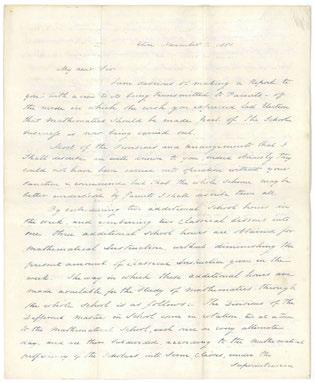 Eton November 7. 1851
My dear Sir
I am desirous of making a Report to
you with a view to its being transmitted to Parents of
the mode in which the wish you expressed last Election
that Mathematics should be made part of the School
business is now being carried out.
Most of the Divisions and arrangements that I
shall describe are well known to you indeed obviously they
could not have been carried into operation without your
sanction & command but that the whole scheme may be
better understood by Parents I shall describe them all.
By introducing two additional School hours in
the week and combining two Classical lessons into
one three additional school hours are obtained for
Mathematical Instruction without diminishing the
present amount of Classical Instruction given in the
week. The way in which these additional hours are
made available for the Study of Mathematics through
the whole School is as follows: The Divisions of the
different Masters in School come in rotation two at a time
to the Mathematical School, each one on every alternate
day and are there subdivided, according to the Mathematical
proficiency of the Scholars into Classes, under the
Superintendence